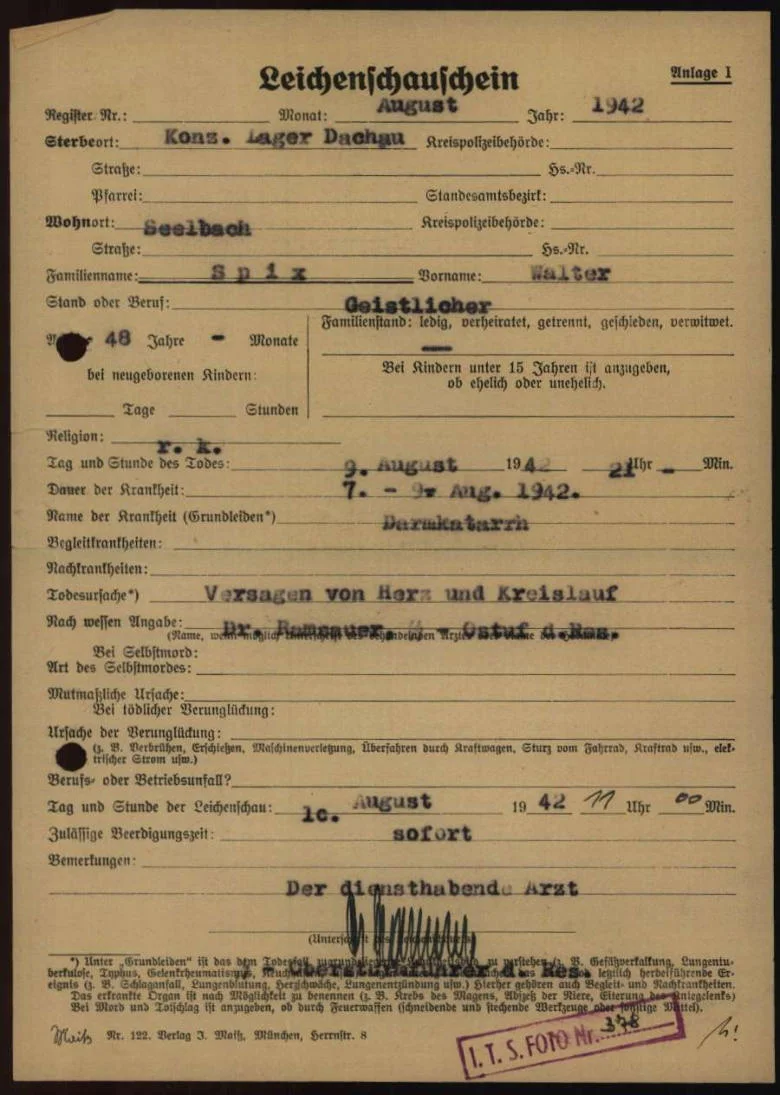 Leichenschauschein
Anlage I
Register Nr.: Monat: August Jahr: 1942
Sterbeort: Konz. Lager Dachau Kreispolizeibehörde:
Straße: Hs.-Nr.
Pfarrei: Standesamtsbezirk:
Wohnort: Seelbach Kreispolizeibehörde:
Straße: Hs.-Nr.
Familienname: Spix Vorname: Walter
Stand oder Beruf: Geistlicher
Familienstand: ledig, verheiratet, getrennt, geschieden, verwitwet.
48 Jahre - Monate
—
bei neugeborenen Kindern:
Bei Kindern unter 15 Jahren ist anzugeben,
ob ehelich oder unehelich.
Tage Stunden
Religion: r. k.
Tag und Stunde des Todes: 9. August 1942 21 Uhr - Min.
Dauer der Krankheit: 7. - 9. Aug. 1942.
Name der Krankheit (Grundleiden*) Darmkatarrh
Begleitkrankheiten:
Nachkrankheiten:
Todesursache*) Versagen von Herz und Kreislauf
Nach wessen Angabe: Dr. Ramsauer, - Ostuf d.Res.
(Name, wenn möglich Unterschrift des behandelnden Arztes
Bei Selbstmord:
Art des Selbstmordes:
Mutmaßliche Ursache:
Bei tödlicher Verunglückung:
Ursache der Verunglückung:
(z. B. Verbrühen, Erschießen, Maschinenverletzung, Überfahren durch Kraftwagen, Sturz vom Fahrrad, Kraftrad usw., elek-
trischer Strom usw.)
Berufs- oder Betriebsunfall?
Tag und Stunde der Leichenschau: 1o. August 1942 11 Uhr 00 Min.
Zulässige Beerdigungszeit: sofort
Bemerkungen:
Der diensthabende Arzt
(Unterschrift des
*) Unter „Grundleiden“ ist das dem Todesfall zugrundeliegende zu verstehen (z. B. Gefäßverkalkung, Lungentu-
berkulose, Typhus, Gelenkrheumatismus, das letztlich herbeiführende Er-
Obersturmführer d. Res.
eignis (z. B. Schlaganfall, Lungenblutung, Herzschwäche, Lungenentzündung usw.) Hierher gehören auch Begleit- und Nachkrankheiten.
Das erkrankte Organ ist nach Möglichkeit zu benennen (z. B. Krebs des Magens, Abszeß der Niere, Eiterung des Kniegelenks)
Bei Mord und Totschlag ist anzugeben, ob durch Feuerwaffen (schneidende und stechende Werkzeuge oder sonstige Mittel).
Maiß Nr. 122. Verlag J. Maiß, München, Herrnstr. 8
I. T. S. FOTO Nr. 378